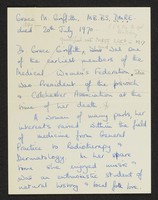 Grace M. Griffith, M.B. B.S., D.M.R.E.
died 20th July 1970
Dr Grace Griffith, was one of
the earliest members of the
Medical Women's Federation, She
was President of the
& Colchester Association at the
time of her death.
A woman of many parts, her
interests varied within the field
of medicine from General
Practice to Radiotherapy &
Dermatology. In her spare
time she enjoyed music &
was an enthusiastic student of
natural history & local folk lore